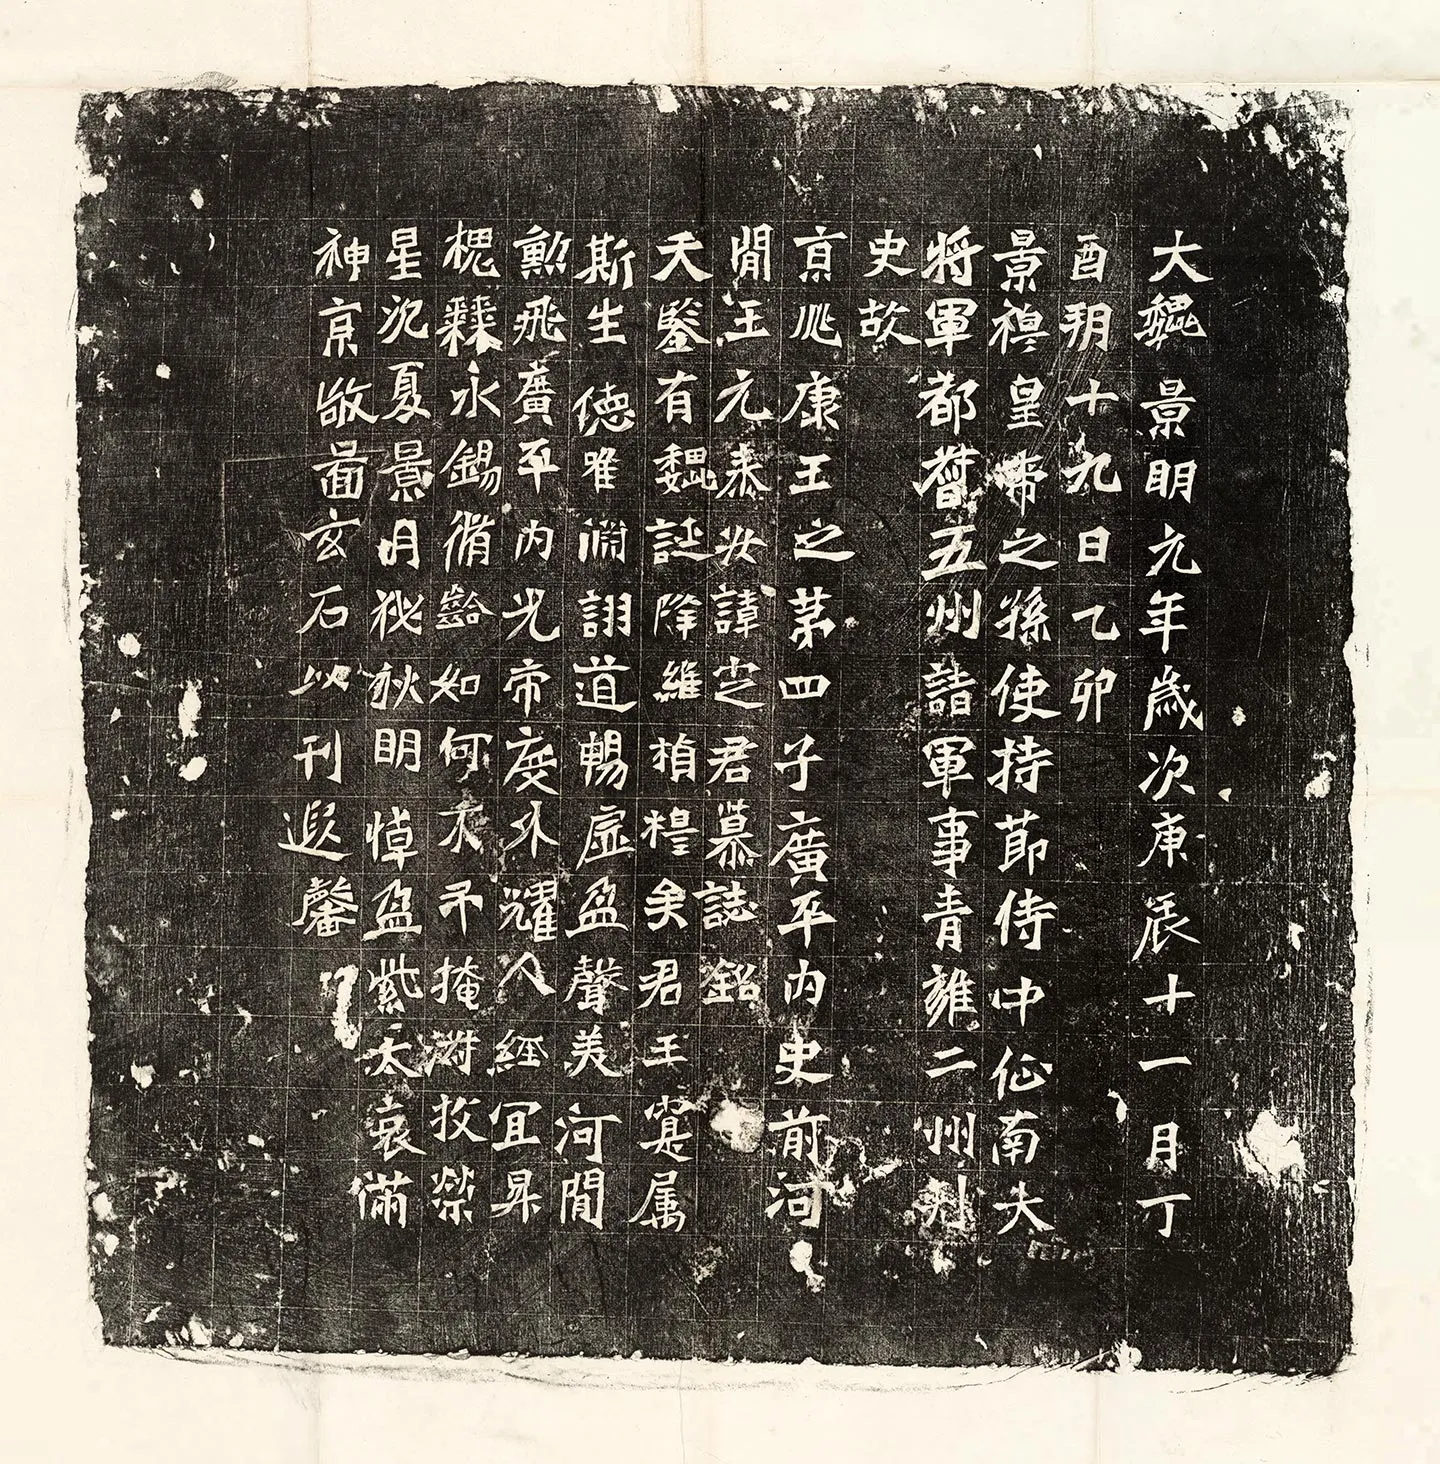 大魏景明元年歲次庚辰十一月丁
酉朔十九日乙卯
景穆皇帝之孫使持節侍中征南大
將軍都督五州諸軍事青雍二州刺
史故
京兆康王之第四子廣平內史前河
間王元泰安諱定君墓誌銘
天鑒有魏誕降維楨穆矣君王寔属
斯生德唯淵詡道暢虛盈聲美河間
勳飛廣平內光帝度外耀人經宜昇
槐棘永錫脩齡如何不弔掩攸榮
星沉夏景月祕秋明悼盈紫天哀滿
神京敬圖玄石以刊遐馨